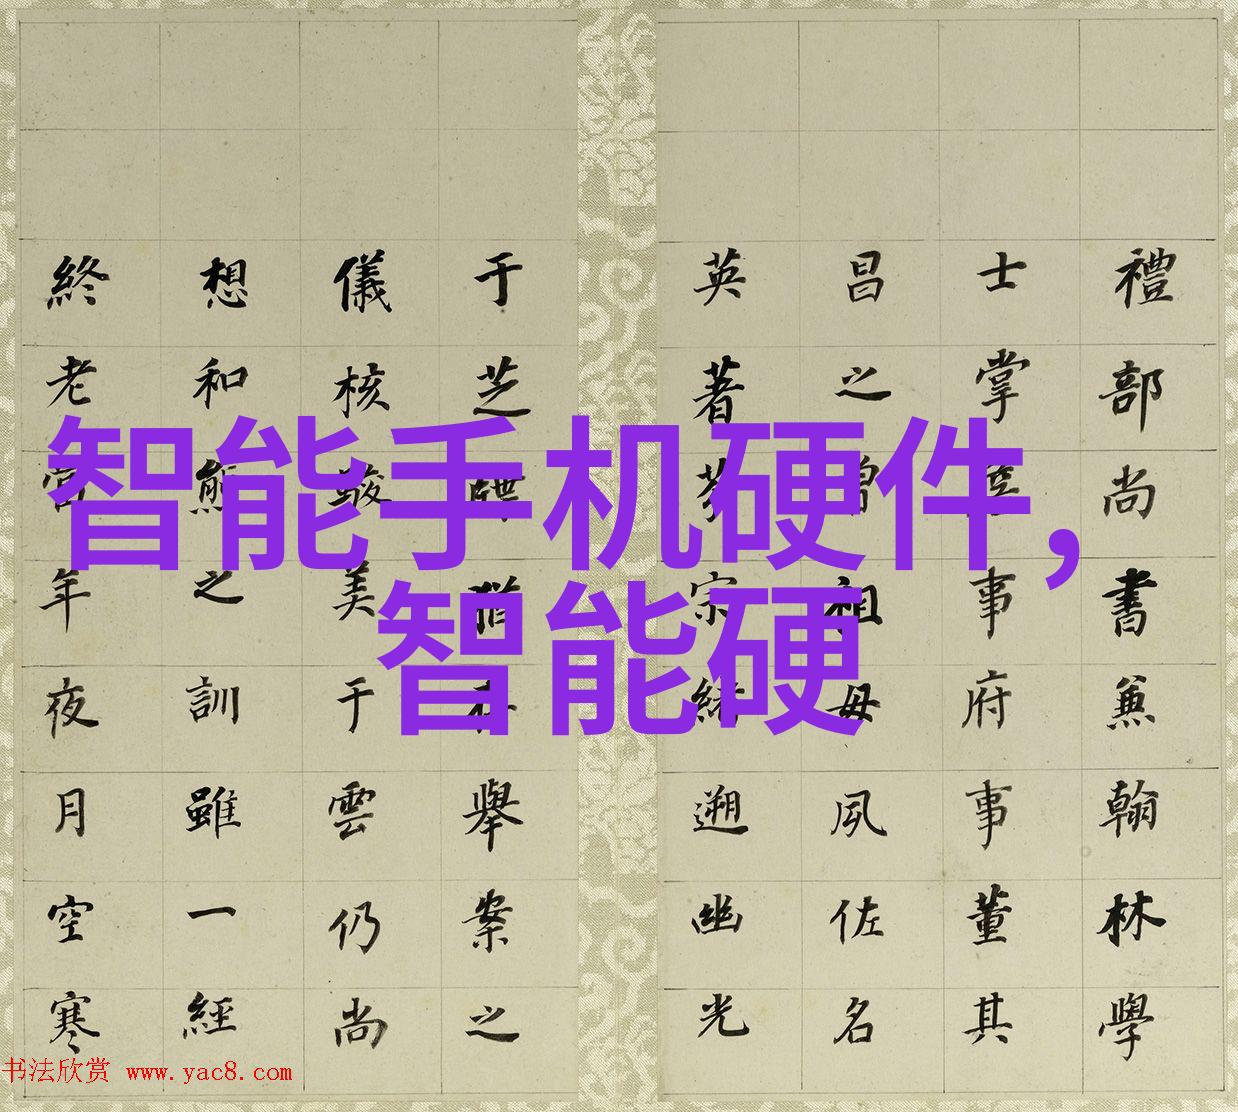 智能手机硬件,
智能硬
禮部尚書兼翰林學
士掌事府事董其
昌之曾祖母夙佐名
英著宗緒遡幽光
于芝舉案之
儀核美于雲仍尚
想和熊之訓雖一經
終老年夜月空寒
书法欣赏 www.yac8.com